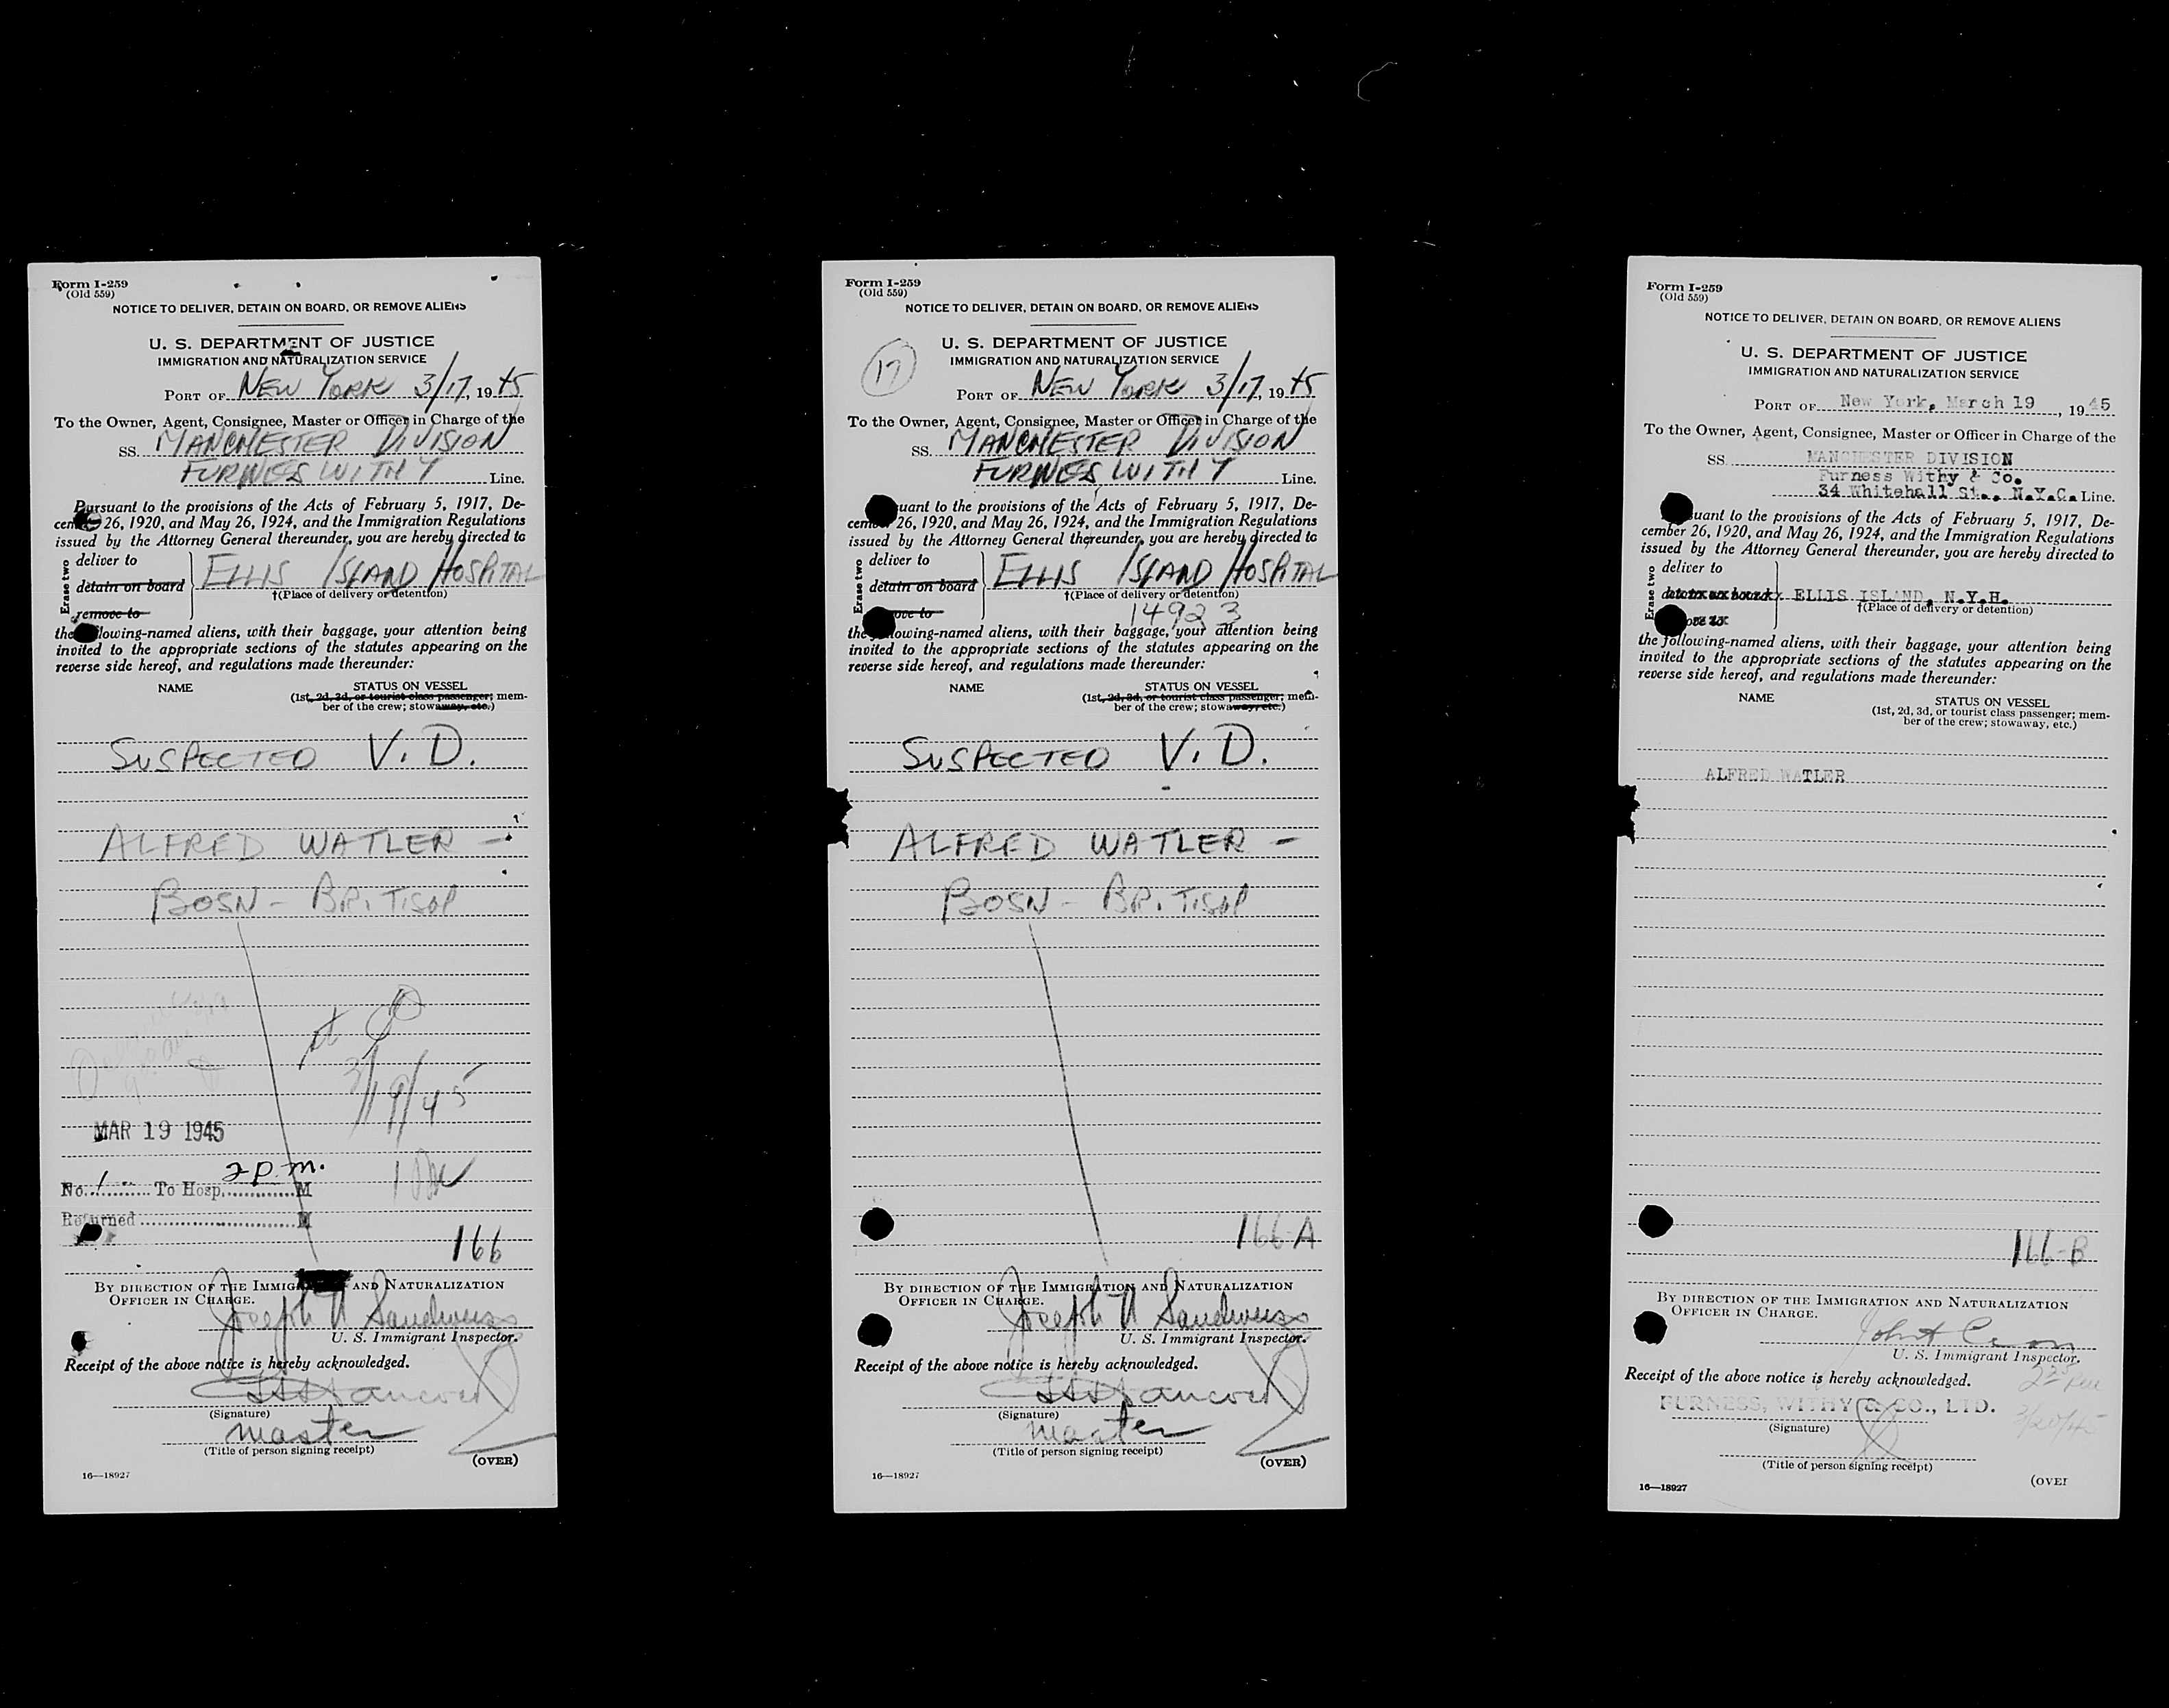 Form I-259
(Old 559)
NOTICE TO DELIVER, DETAIN ON BOARD, OR REMOVE ALIENS
U. S. DEPARTMENT OF JUSTICE
IMMIGRATION AND NATURALIZATION SERVICE
PORT OF NEW YORK 3/17, 1945
To the Owner, Agent, Consignee, Master or Officer in Charge of the
SS. MANCHESTER DIVISION
FURNES WITHY Line.
Pursuant to the provisions of the Acts of February 5, 1917, De-
cember 26, 1920, and May 26, 1924, and the Immigration Regulations
issued by the Attorney General thereunder, you are hereby directed to
Erase two
deliver to
detain on board
remove to
ELLIS ISLAND HOSPITAL
†(Place of delivery or detention)
the following-named aliens, with their baggage, your attention being
invited to the appropriate sections of the statutes appearing on the
reverse side hereof, and regulations made thereunder:
NAME STATUS ON VESSEL
(1st, 2d, 3d, or tourist class passenger; mem-
ber of the crew; stowaway, etc.)
SUSPECTED V.D.
ALFRED WATLER -
BOSN - BRITISH
3/19/45
MAR 19 1945
No. 1 To Hosp. 2 p.m. M
Returned M
166
BY DIRECTION OF THE IMMIGRATION AND NATURALIZATION
OFFICER IN CHARGE.
Joseph
U. S. Immigrant Inspector.
Receipt of the above notice is hereby acknowledged.
Hancock
(Signature)
master
(Title of person signing receipt)
(OVER)
16—18927
Form I-259
(Old 559)
NOTICE TO DELIVER, DETAIN ON BOARD, OR REMOVE ALIENS
U. S. DEPARTMENT OF JUSTICE
IMMIGRATION AND NATURALIZATION SERVICE
17
PORT OF NEW YORK 3/17, 1945
To the Owner, Agent, Consignee, Master or Officer in Charge of the
SS. MANCHESTER DIVISION
FURNES WITHY Line.
uant to the provisions of the Acts of February 5, 1917, De-
cember 26, 1920, and May 26, 1924, and the Immigration Regulations
issued by the Attorney General thereunder, you are hereby directed to
Erase two
deliver to
detain on board
ove to
ELLIS ISLAND HOSPITAL
†(Place of delivery or detention)
14923
the following-named aliens, with their baggage, your attention being
invited to the appropriate sections of the statutes appearing on the
reverse side hereof, and regulations made thereunder:
NAME STATUS ON VESSEL
(1st, 2d, 3d, or tourist class passenger; mem-
ber of the crew; stowaway, etc.)
SUSPECTED V.D.
ALFRED WATLER -
BOSN - BRITISH
166-A
BY DIRECTION OF THE IMMIGRATION AND NATURALIZATION
OFFICER IN CHARGE.
Joseph
U. S. Immigrant Inspector.
Receipt of the above notice is hereby acknowledged.
Hancock
(Signature)
master
(Title of person signing receipt)
(OVER)
16—18927
Form I-259
(Old 559)
NOTICE TO DELIVER, DETAIN ON BOARD, OR REMOVE ALIENS
U. S. DEPARTMENT OF JUSTICE
IMMIGRATION AND NATURALIZATION SERVICE
PORT OF New York, March 19, 1945
To the Owner, Agent, Consignee, Master or Officer in Charge of the
SS. MANCHESTER DIVISION
Furness Withy & Co.
34 Whitehall St., N.Y.C. Line.
suant to the provisions of the Acts of February 5, 1917, De-
cember 26, 1920, and May 26, 1924, and the Immigration Regulations
issued by the Attorney General thereunder, you are hereby directed to
Erase two
deliver to
ELLIS ISLAND, N.Y.H.
†(Place of delivery or detention)
the following-named aliens, with their baggage, your attention being
invited to the appropriate sections of the statutes appearing on the
reverse side hereof, and regulations made thereunder:
NAME STATUS ON VESSEL
(1st, 2d, 3d, or tourist class passenger; mem-
ber of the crew; stowaway, etc.)
ALFRED WATLER
166-B
BY DIRECTION OF THE IMMIGRATION AND NATURALIZATION
OFFICER IN CHARGE.
John
U. S. Immigrant Inspector.
Receipt of the above notice is hereby acknowledged.
FURNESS, WITHY & CO., LTD.
3/20/45
(Signature)
(Title of person signing receipt)
(OVER
16—18927